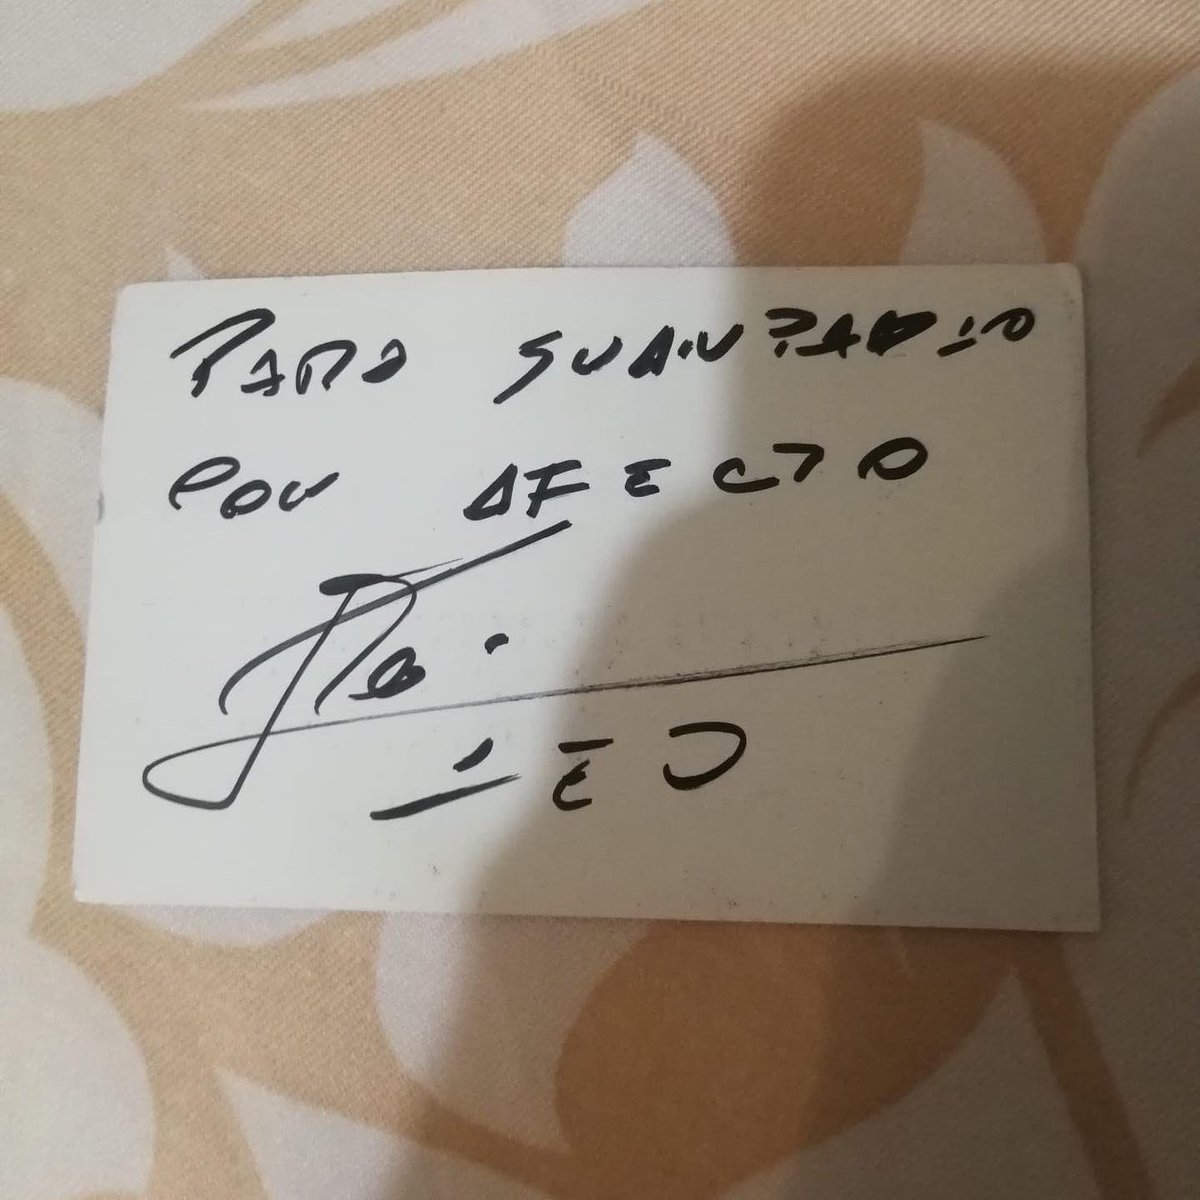 PARA JUAN PABLO
CON AFECTO
LEO